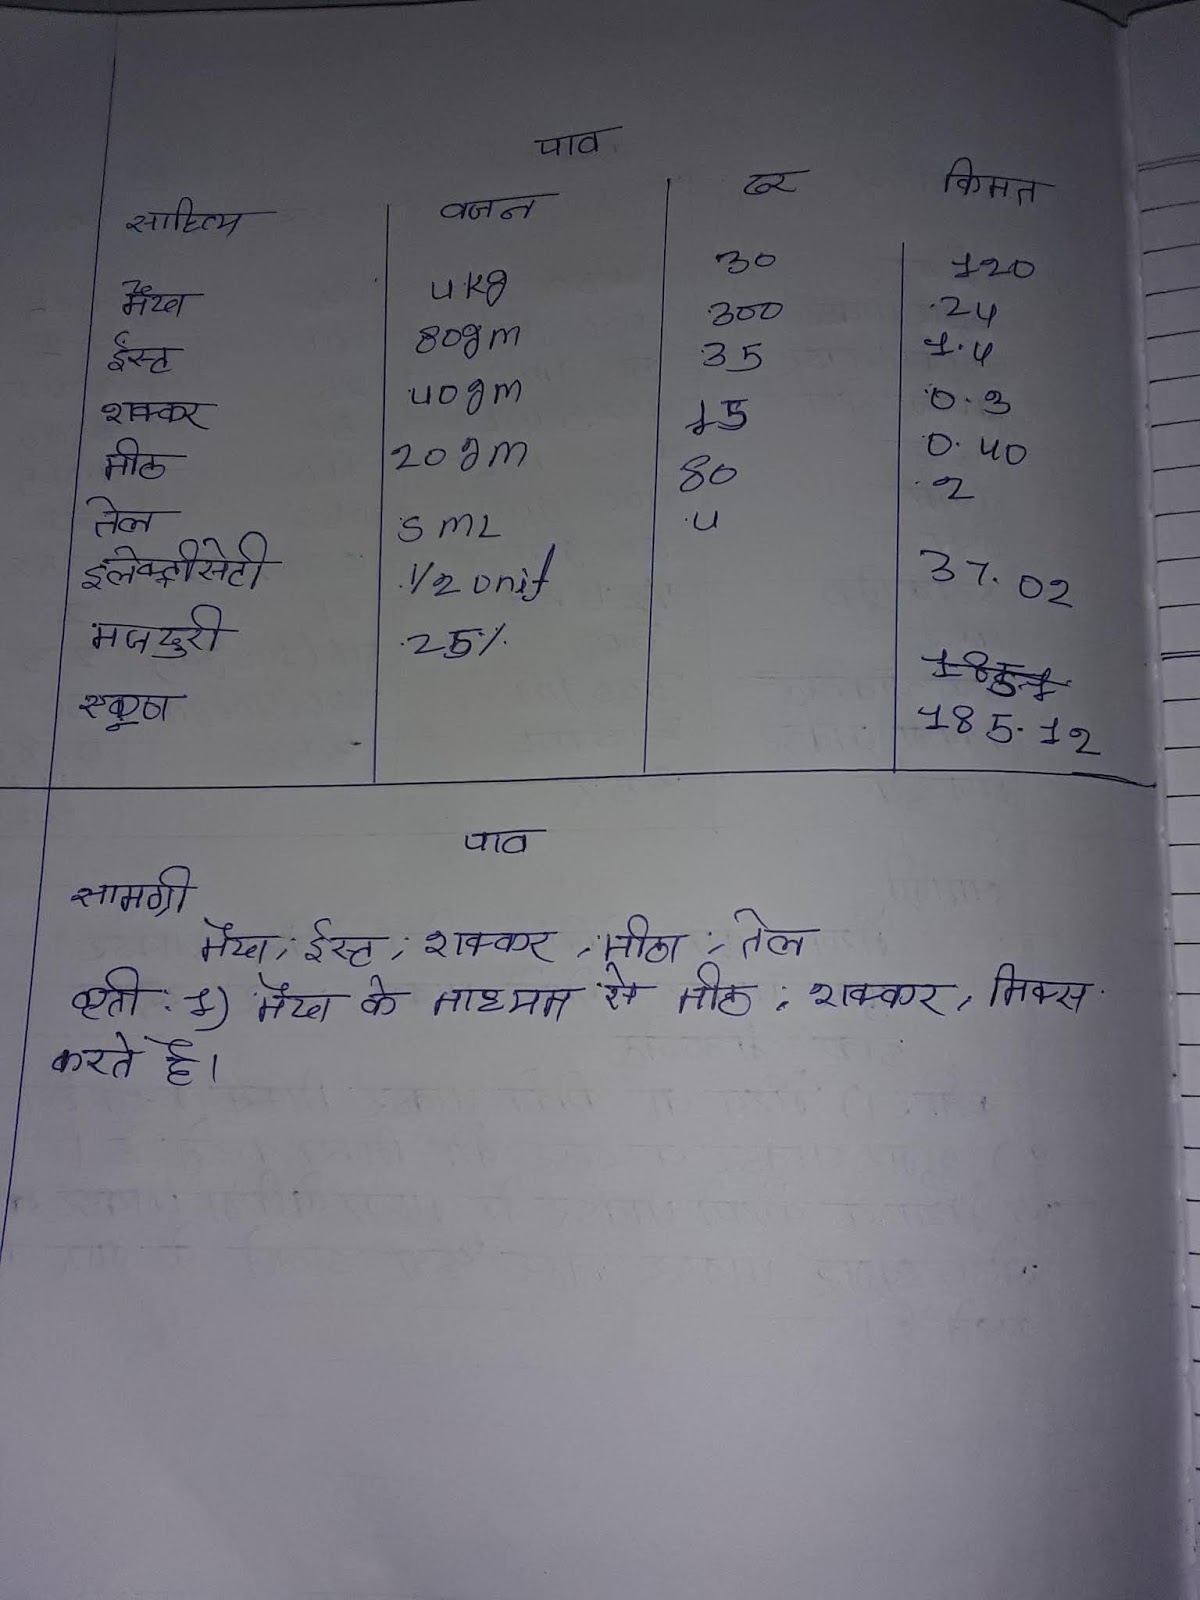 पाव
साहित्य वजन दर किंमत
मैदा 4kg 30 120
ईस्ट 80gm 300 24
शक्कर 40gm 35 1.4
मीठ 20gm 15 0.3
तेल 5 ML 80 0.40
इलेक्ट्रीसेटी 1/2 unit 4 2
मजदुरी 25% 37.02
185.1
एकूण 185.12
पाव
सामग्री
मैदा, ईस्ट, शक्कर, मीठा, तेल
कृती : 1) मैदा के माध्यम से मीठ, शक्कर, मिक्स
करते है।